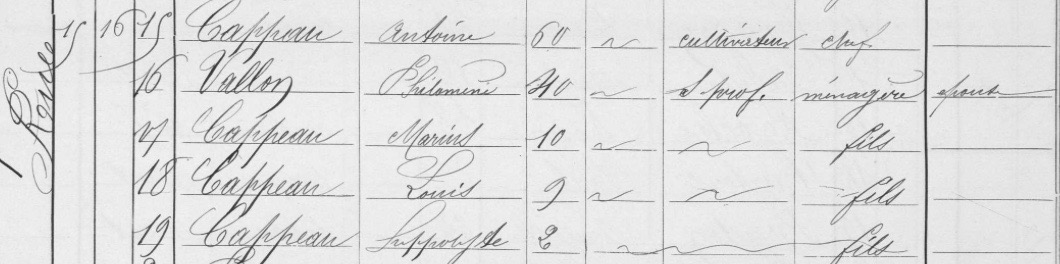 15 16 15 Cappeau Antoine 60 ~ cultivateur chef
16 Vallon Philomène 40 ~ S prof. ménagère épouse
17 Cappeau Marius 10 ~ ~ fils
18 Cappeau Louis 9 ~ ~ fils
19 Cappeau Hyppolyte 2 ~ ~ fils